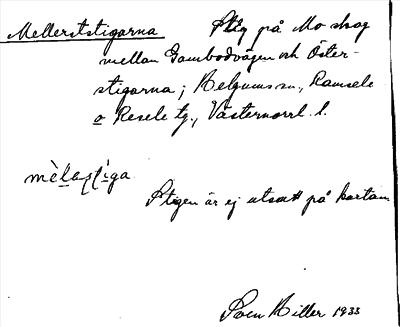 Mellerststigarna Stig på Mo skog
mellan Gambodvägen och Öster-
stigarna; Helgums sn., Ramsele
o Resele tg., Västernorrl. l.
mèlaʂʈìga
Stigen är ej utsatt på kartan
Sven Hiller 1933